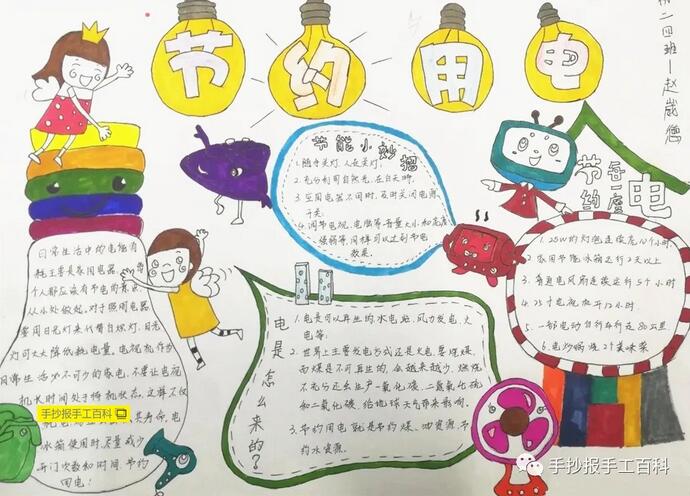 节约用电
初二四班—赵崴偲
节能小妙招
1.随手关灯,人走关灯.
2.充分利用自然光,在白天时.
3.家用电器不用时,及时关闭电源
开关.
4.调节电视、电脑等音量大小和亮度
强弱等,同样可以达到节电
效果.
节约每一度电
1.25W的灯泡连续亮40个小时
2.家用节能冰箱运行2天以上
3.普通电风扇连续运行5个小时
4.25寸电视机开12小时.
5.一部电动自行车行走80公里
6.电炒锅烧2个美味菜
日常生活中的电能消
耗主要是家用电器.
个人都应该有节电的意识,
从小处做起.对于照明电器
家用日光灯来代替白炽灯.日光
灯可大大降低耗电量.电视机作为
日常生活必不可少的家电,不要让电视
机长时间处于待机状态,这样不仅
手抄报手工百科
其寿命.电
冰箱使用时,尽量减少
开门次数和时间.节约
用电!
电是怎么来的?
1.电是可以再生的,水电站,风力发电,火
电等.
2.世界上主要发电方式还是火电.要烧煤,
而煤是不可再生的,会越来越少.燃烧
不充分还会生产一氧化碳、二氧化硫
和二氧化碳,给地球大气带来影响.
3.节约用电就是节约煤、油资源.节
约水资源.
手抄报手工百科